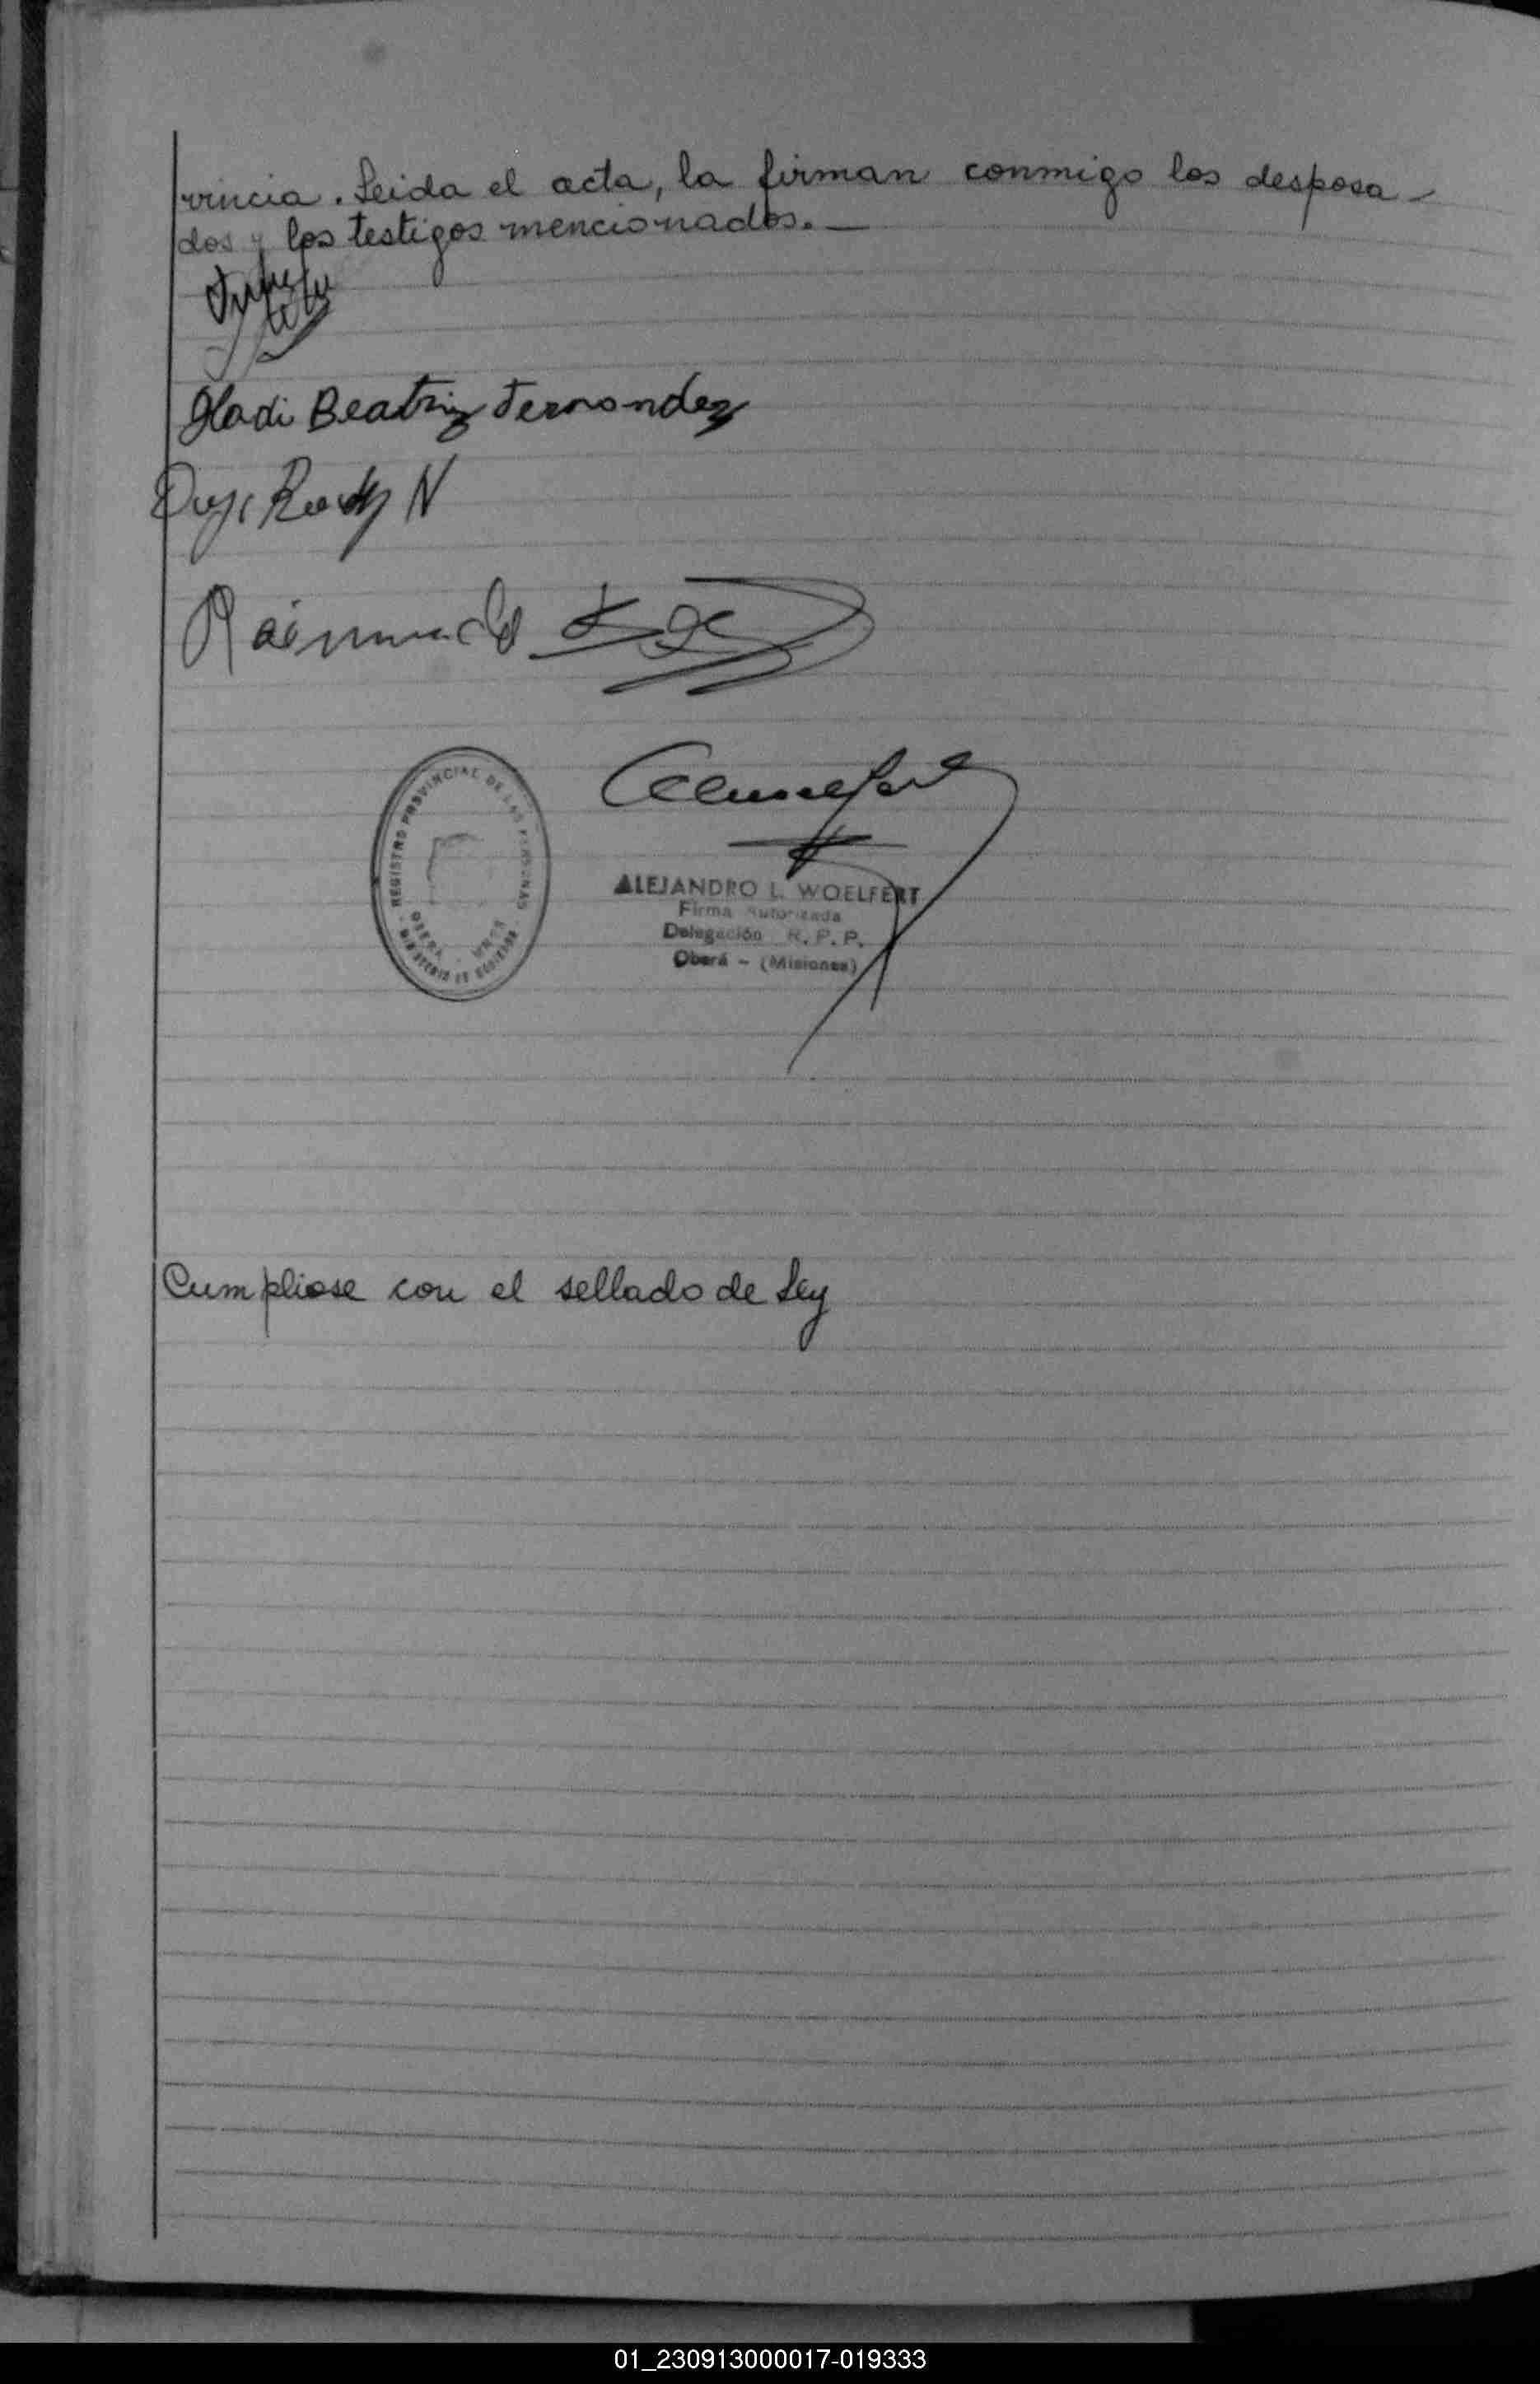 vincia. Leida el acta, la firman conmigo los desposa-
dos y los testigos mencionados.—
Gladi Beatriz Fernandez
N
REGISTRO PROVINCIAL DE LAS PERSONAS
ALEJANDRO L. WOELFERT
Firma Autorizada
Delegación R. P. P.
Oberá - (Misiones)
Cumpliose con el sellado de Ley
01_230913000017-019333